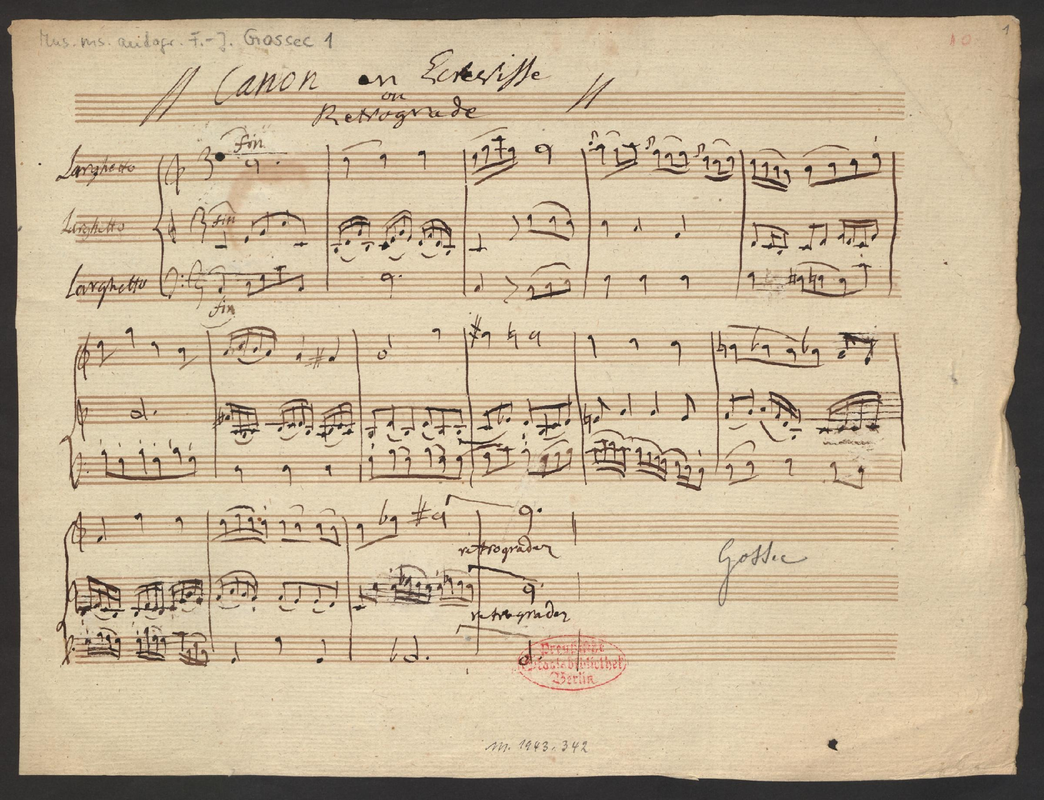 Mus. ms. autogr. F.-J. Gossec 1
10
1
Canon en Ecrevisse
ou
Retrograde
Larghetto
fin
Larghetto
fin
Larghetto
fin
retrograder
Gossec
retrograder
Preußische
Staatsbibliothek
Berlin
M. 1943.342